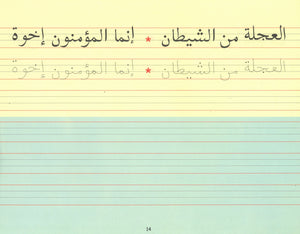 العجلة من الشيطان * إنما المؤمنون إخوة
العجلة من الشيطان * إنما المؤمنون إخوة
14